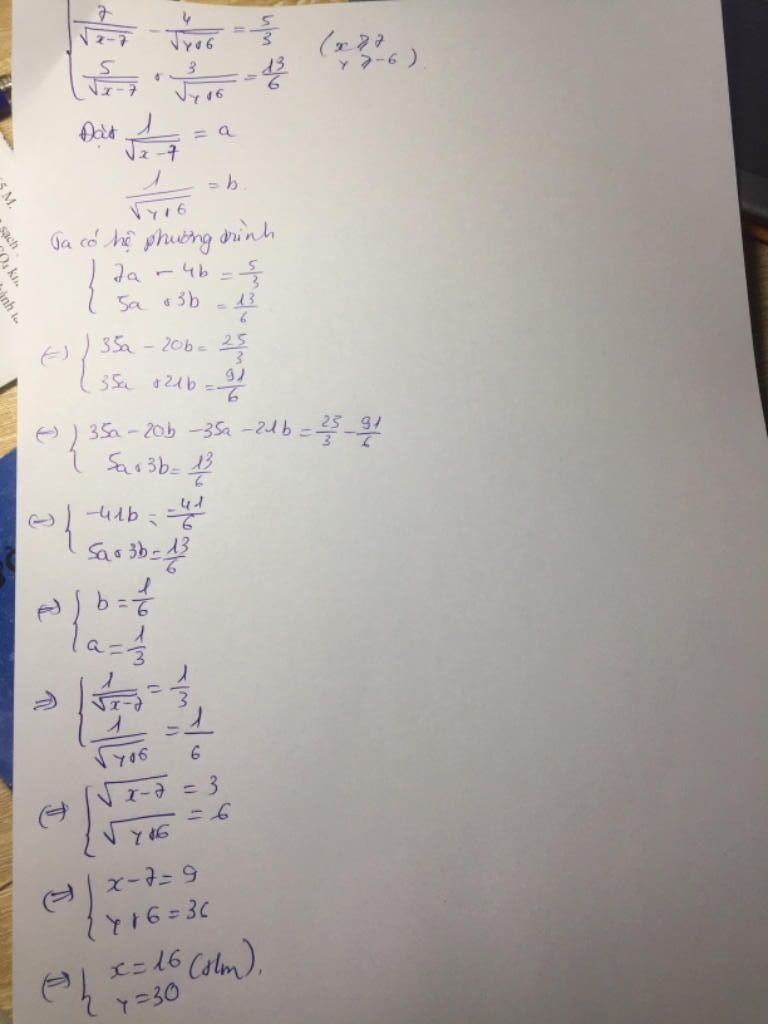 { 7/√(x-7) - 4/√(y+6) = 5/3 (x ≥ 7
{ 5/√(x-7) + 3/√(y+6) = 13/6 y ≥ -6).
Đặt 1/√(x-7) = a
1/√(y+6) = b.
Ta có hệ phương trình
{ 7a - 4b = 5/3
{ 5a + 3b = 13/6
(=) { 35a - 20b = 25/3
{ 35a + 21b = 91/6
(=) { 35a - 20b - 35a - 21b = 25/3 - 91/6
{ 5a + 3b = 13/6
(=) { -41b = -41/6
{ 5a + 3b = 13/6
(=) { b = 1/6
{ a = 1/3
=> { 1/√(x-7) = 1/3
{ 1/√(y+6) = 1/6
(=) { √(x-7) = 3
{ √(y+6) = 6
(=) { x - 7 = 9
{ y + 6 = 36
(=) { x = 16 (tlm).
{ y = 30
5 M.
sạch